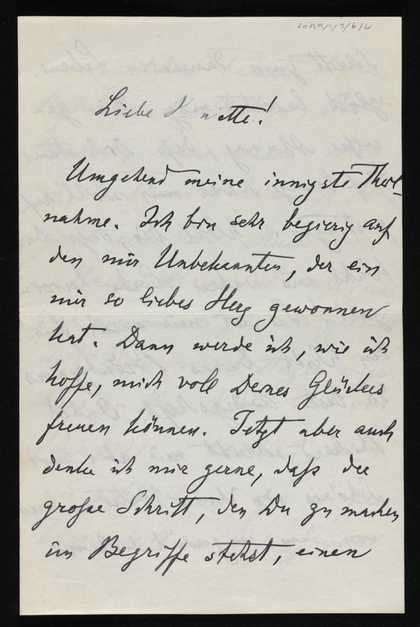 Liebe
Umgehend meine innigste Theil-
nahme. Ich bin sehr begierig auf
den mir Unbekannten, der ein
mir so liebes Herz gewonnen
hat. Dann werde ich, wie ich
hoffe, mich voll Deines Glückes
freuen können. Jetzt aber auch
denke ich mir gerne, daß der
große Schritt, den Du zu machen
im Begriffe stehst, einen